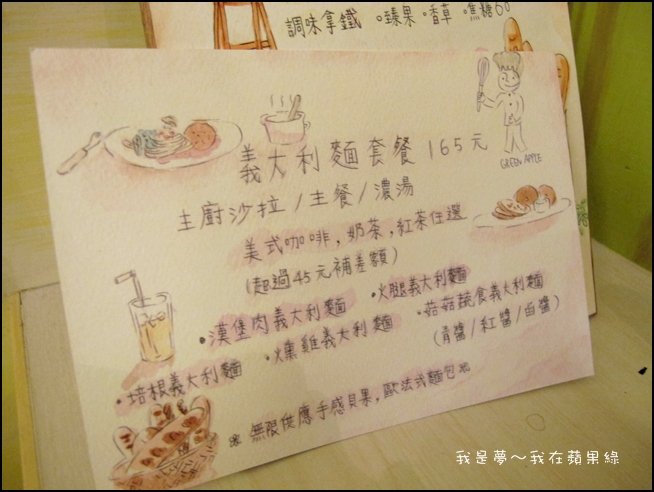 調味拿鐵 •臻果•香草•焦糖60
義大利麵套餐 165元
GREEN APPLE
主廚沙拉/主餐/濃湯
美式咖啡,奶茶,紅茶任選
(超過45元補差額)
•火腿義大利麵
•漢堡肉義大利麵
•菇菇蔬食義大利麵
•燻雞義大利麵
(青醬/紅醬/白醬)
•培根義大利麵
※ 無限供應手感貝果,歐法式麵包
我是夢～我在蘋果綠